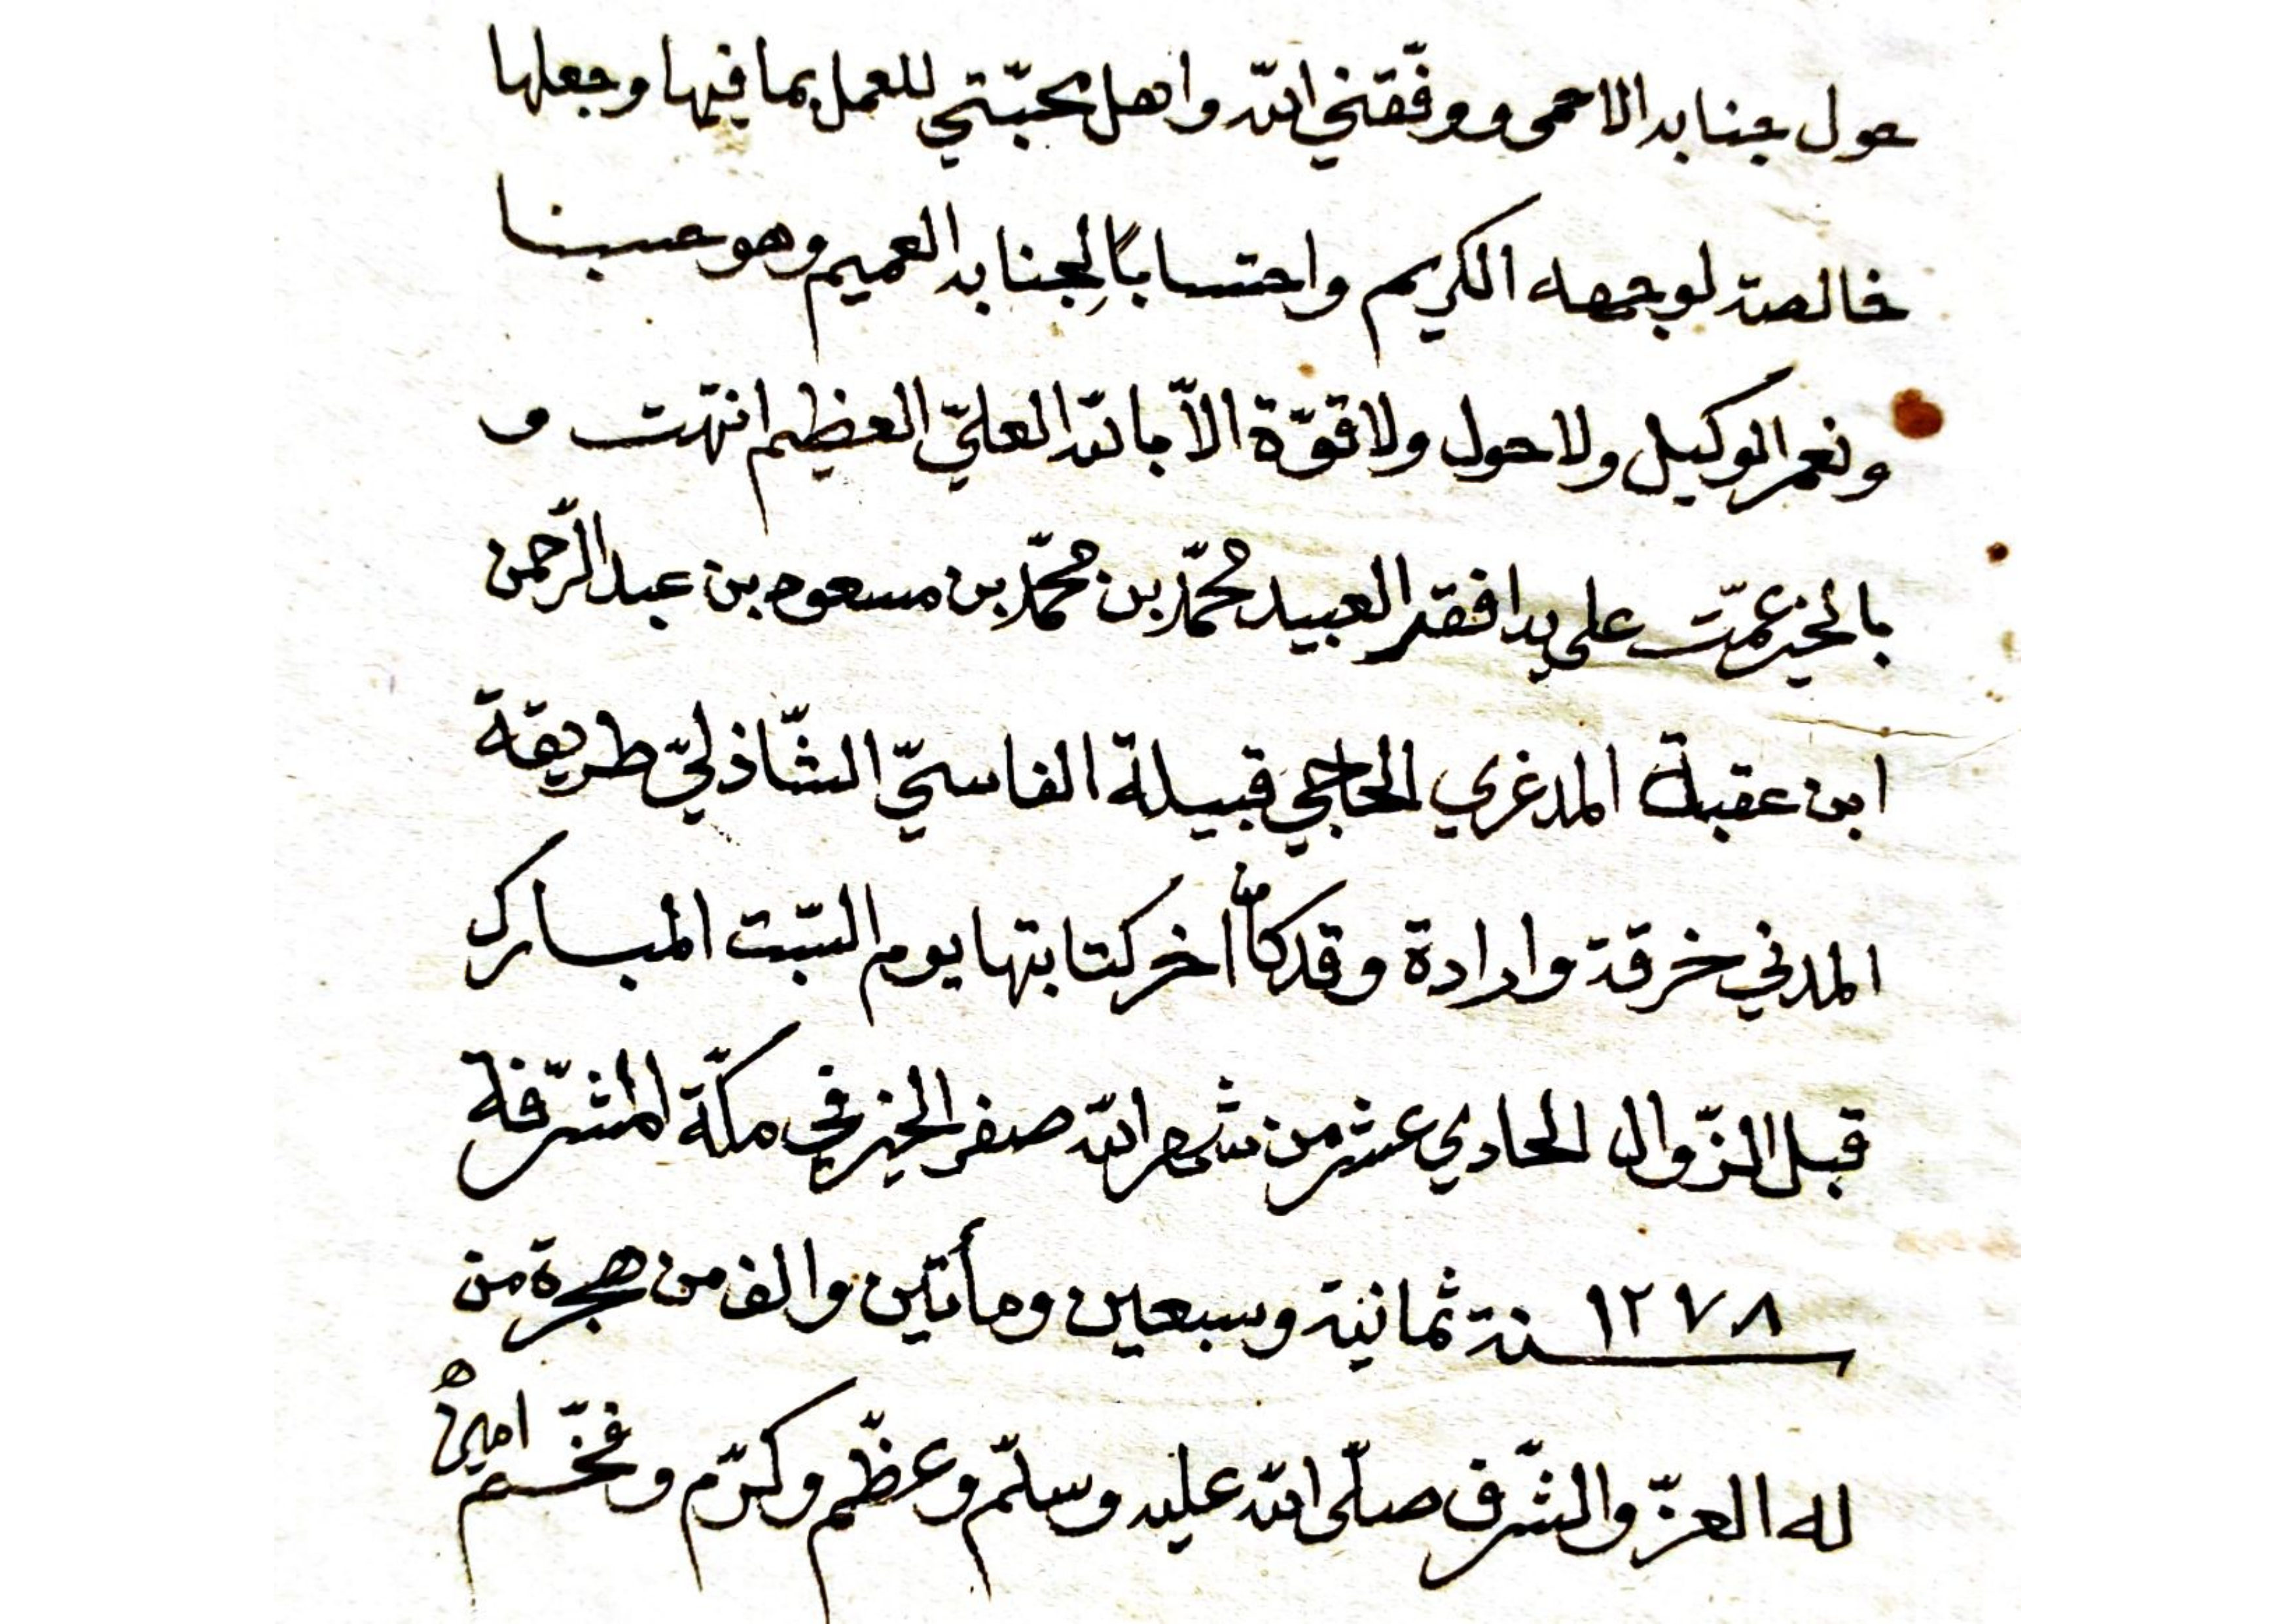 حول جنابه الاحمى ووفّقني الله واهل محبّتي للعمل بما فيها وجعلها
خالصة لوجهه الكريم واحتسابًا لِجنابه العميم وهو حسبنا
ونعم الوكيل ولا حول ولا قوّة الاّ بالله العليّ العظيم انتهت و
بالخير عمّت على يد افقر العبيد محمّد بن محمّد بن مسعود بن عبد الرّحمن
ابن عقبة المدغري الحاجي قبيلة الفاسيّ الشّاذليّ طريقة
المدني خرقة وارادة وقد كان من اخر كتابتها يوم السّبت المبارك
قبل الزّوال الحادي عشر من شهر الله صفر الخير في مكّة المشرّفة
١٢٧٨ سنة ثمانية وسبعين ومأتين والف من هجرة من
له العزّ والشّرف صلّى الله عليه وسلّم وعظّم وكرّم وفخّم امين ه